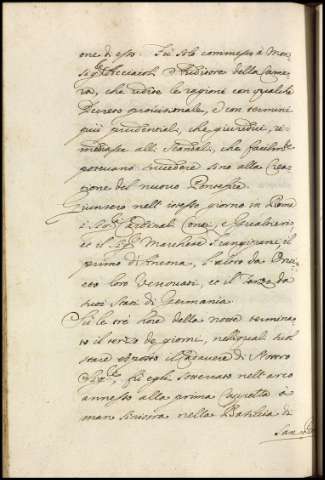 one di esso. Fù solo commesso à Mon=
sig.r Acciaioli Auditore della Came=
ra, che udite le ragioni con qualche
Decreto provisionale, è con termini
più prudentiali, che giuridici, ri=
mediasse alli scandali, che facilmte
potevano succedere sino alla Crea=
zione del nuovo Pontefice.
Giunsero nell' istesso giorno in Roma
i SS.ri Cardinali Conti, e Gualtieri
et il Sig.r Marchese Frangipani, il
primo di Ancona, l'altro da
loro Vescovati, et il Terzo da
suoi stati di Germania.
Sù le trè hore della notte termina=
to il terzo de giorni, nelli quali suol
stare esposto il Cadavere di Nostro
Sig.re, fù egli sotterrato nell' arco
annesso alla prima Cappelletta à
man sinistra nella Basilica di
San